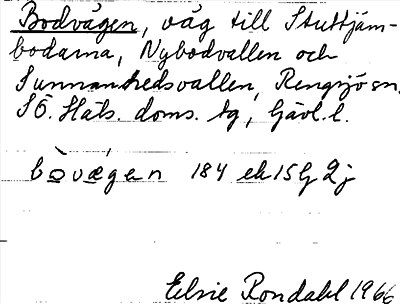 Bodvägen, väg till Stuttjäm-
bodarna, Nybodvallen och
Sunnanhedsvallen, Rengsjö sn.
SÖ. Häls. doms. tg, Gävl. l.
bòvæ̀gen 184 ek 15G 2j
Elsie Rondahl 1966